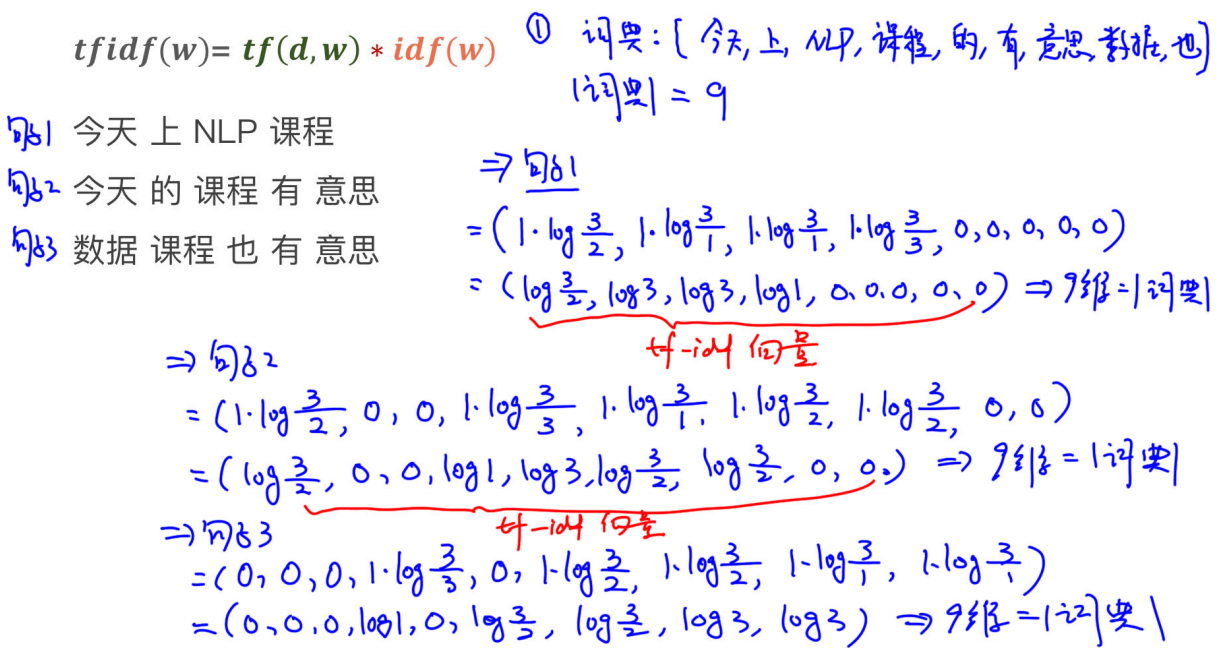 tfidf(w)= tf(d,w) * idf(w)
① 词典:[今天, 上, NLP, 课程, 的, 有, 意思, 数据, 也]
|词典| = 9
句子1 今天 上 NLP 课程
句子2 今天 的 课程 有 意思
句子3 数据 课程 也 有 意思
⇒ 句子1
= (1·log 3/2, 1·log 3/1, 1·log 3/1, 1·log 3/3, 0, 0, 0, 0, 0)
= (log 3/2, log3, log3, log1, 0, 0, 0, 0, 0) ⇒ 9维=|词典|
tf-idf 向量
⇒ 句子2
= (1·log 3/2, 0, 0, 1·log 3/3, 1·log 3/1, 1·log 3/2, 1·log 3/2, 0, 0)
= (log 3/2, 0, 0, log1, log3, log 3/2, log 3/2, 0, 0) ⇒ 9维=|词典|
tf-idf 向量
⇒ 句子3
= (0, 0, 0, 1·log 3/3, 0, 1·log 3/2, 1·log 3/2, 1·log 3/1, 1·log 3/1)
= (0, 0, 0, log1, 0, log 3/2, log 3/2, log3, log3) ⇒ 9维=|词典|